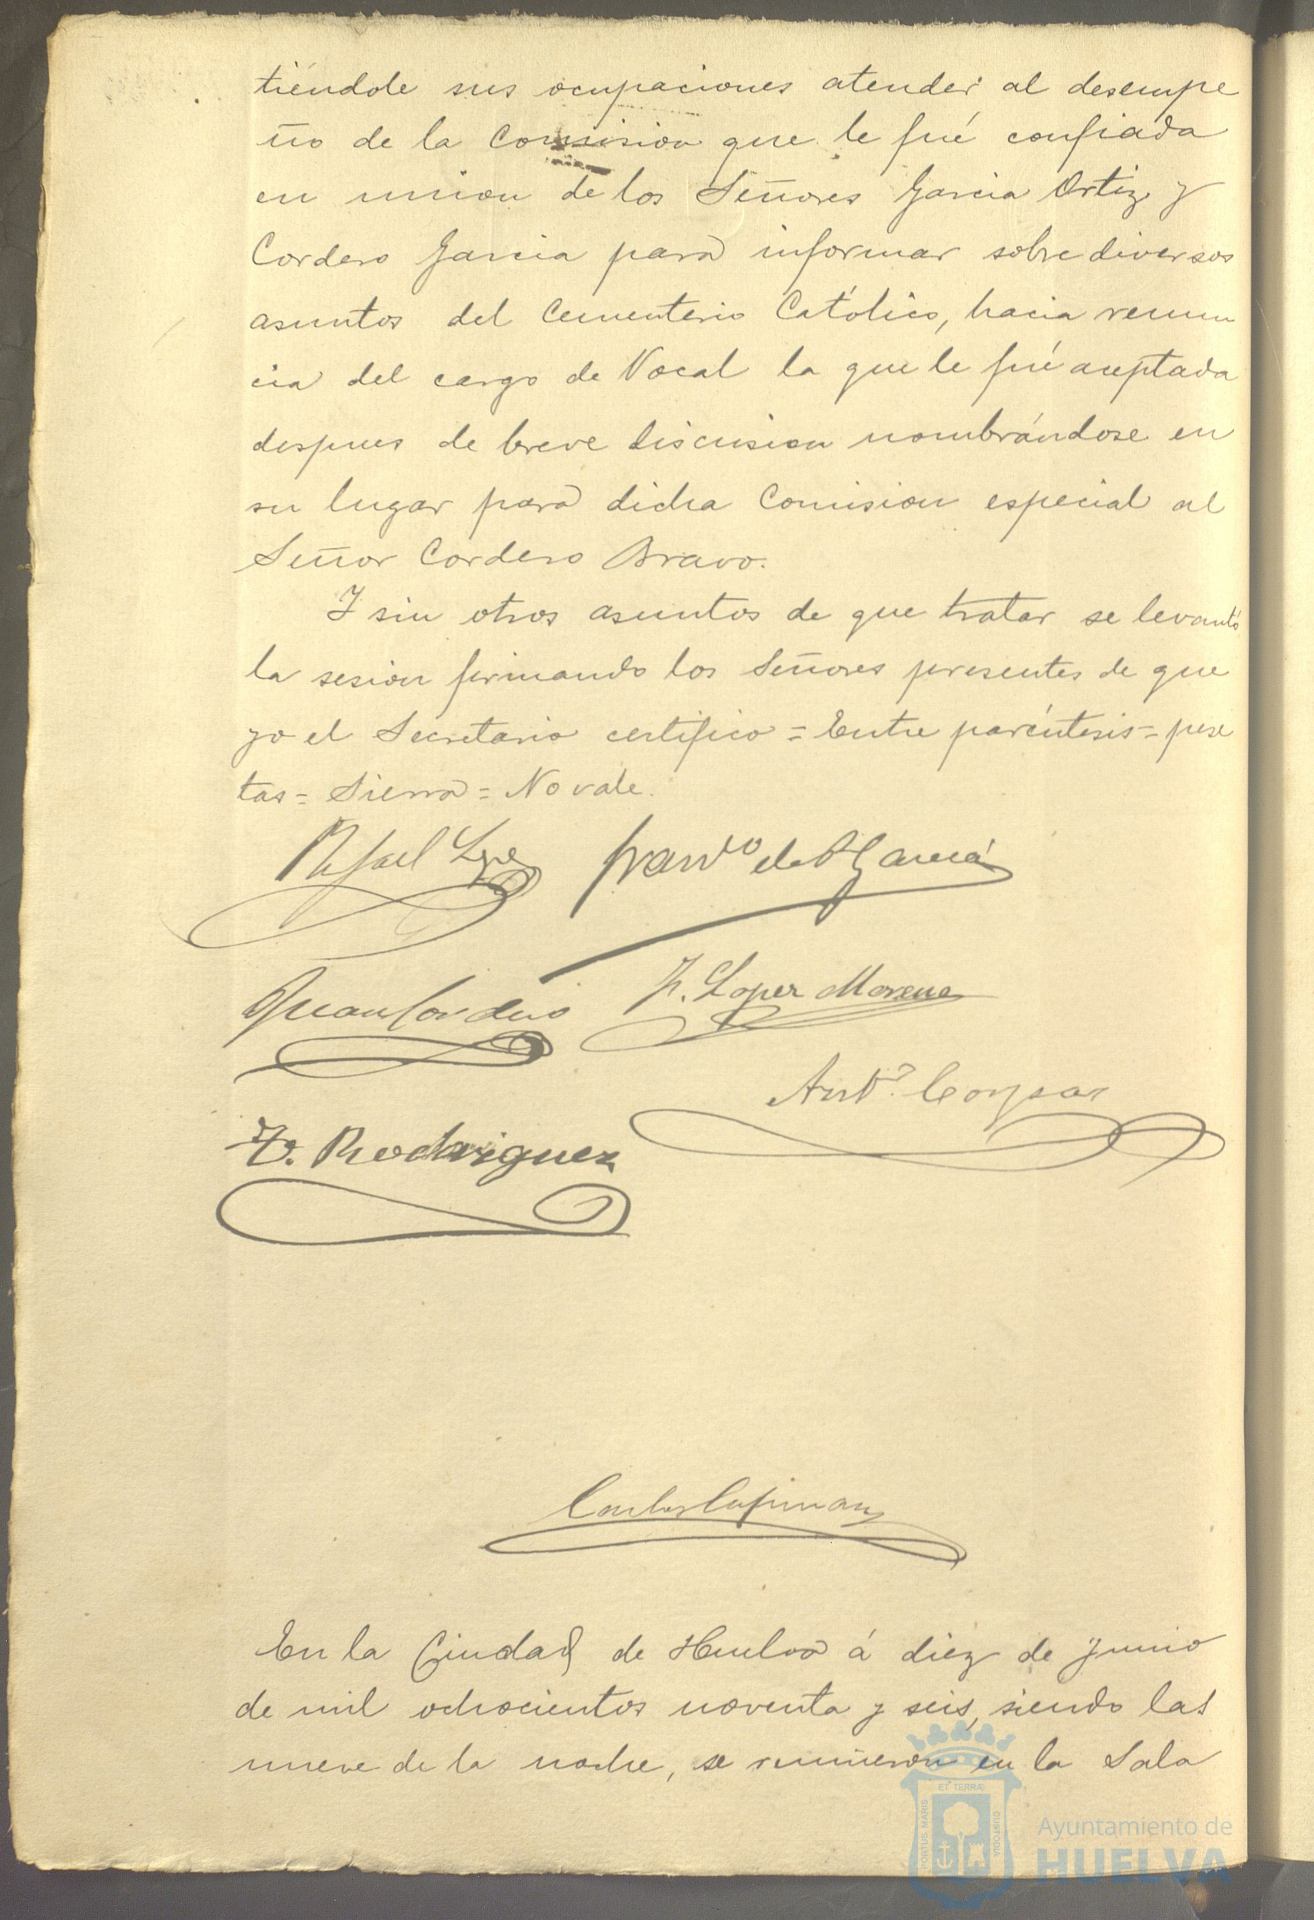 tiéndole sus ocupaciones atender al desempe
ño de la Comision que le fué confiada
en union de los Señores Garcia Ortiz y
Cordero Garcia para informar sobre diversos
asuntos del Cementerio Católico, hacia renun
cia del cargo de Vocal la que le fué aceptada
despues de breve discusion nombrándose en
su lugar para dicha Comision especial al
Señor Cordero Bravo.
Y sin otros asuntos de que tratar se levantó
la sesion firmando los Señores presentes de que
yo el Secretario certifico = Entre paréntesis = pese
tas = Sierra = No vale.
Rafael
Garcia
Juan Cordero
F. Lopez Moreno
Antº
F. Rodriguez
Carlos
En la Ciudad de Huelva á diez de Junio
de mil ochocientos noventa y seis, siendo las
nueve de la noche, se reunieron en la Sala
PORTUS MARIS
ET TERRA
CUSTODIA
Ayuntamiento de
HUELVA